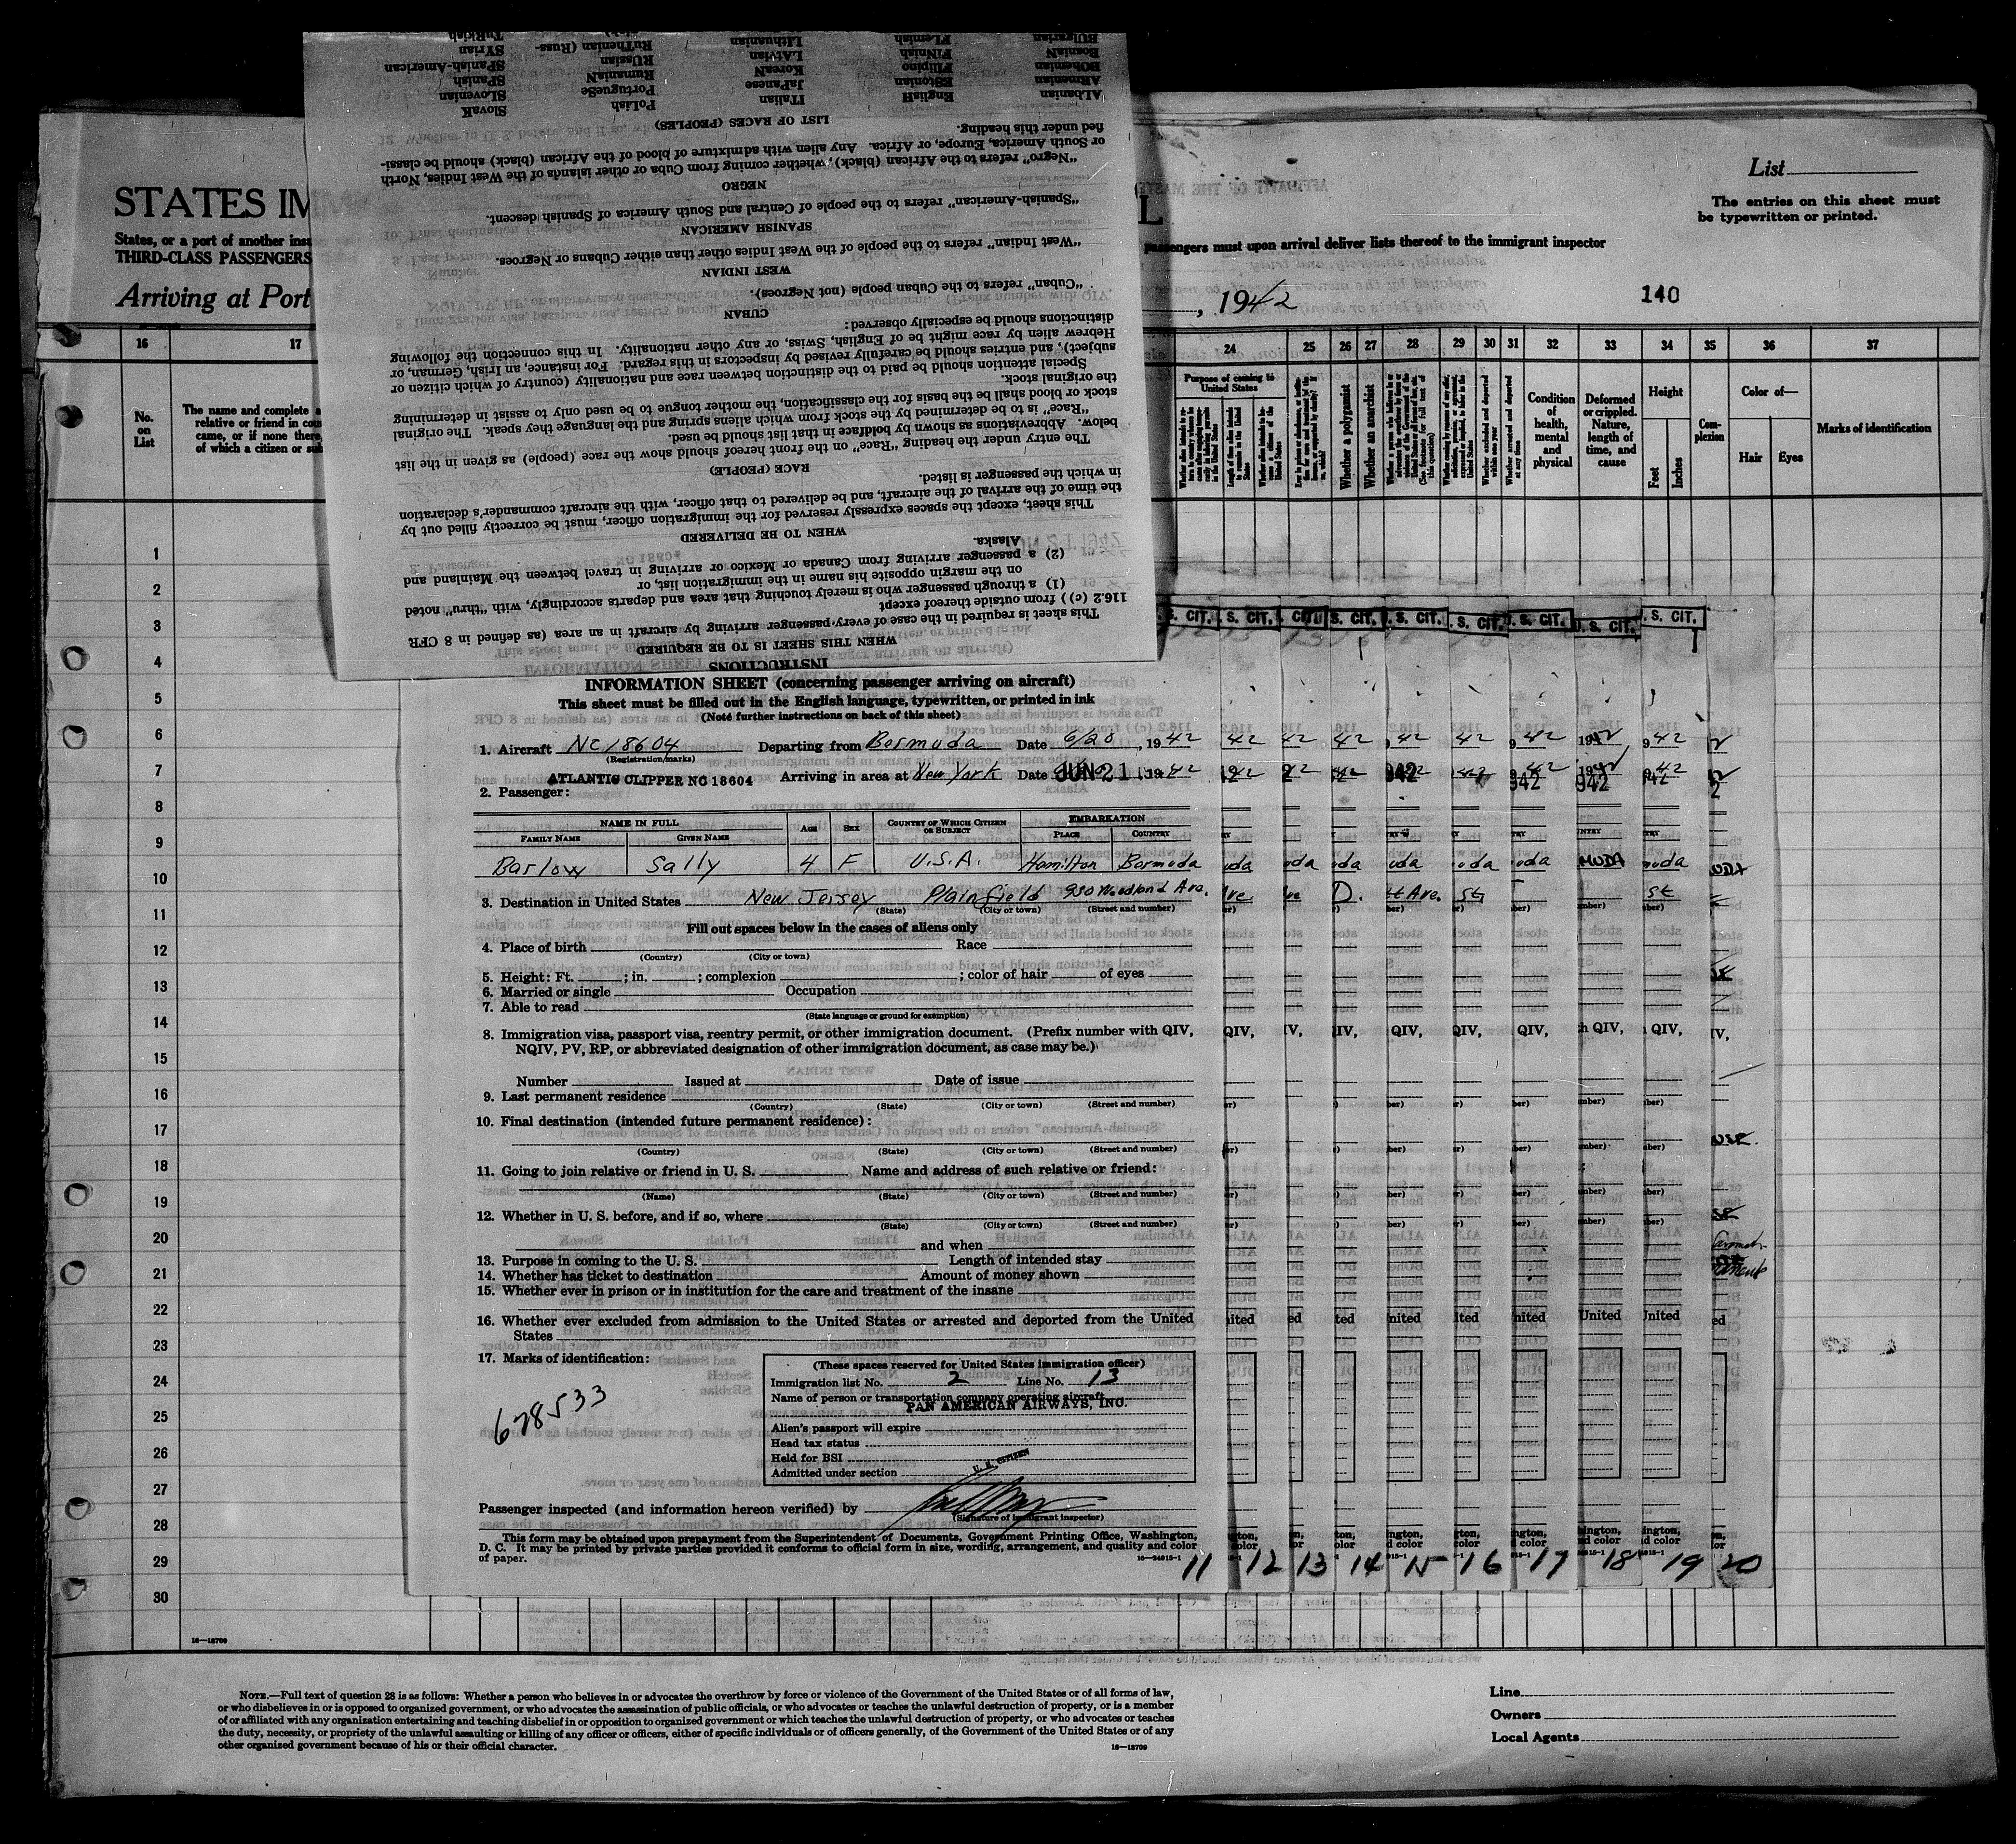 STATES IM
States, or a port of another insu
THIRD-CLASS PASSENGERS
Arriving at Port
L
passengers must upon arrival deliver lists thereof to the immigrant inspector
List
The entries on this sheet must
be typewritten or printed.
, 1942
140
16 17 24 25 26 27 28 29 30 31 32 33 34 35 36 37
No.
on
List
The name and complete a
relative or friend in cou
came, or if none there,
of which a citizen or su
Purpose of coming to
United States
Whether a polygamist
Whether an anarchist
Condition
of
health,
mental
and
physical
Deformed
or crippled.
Nature,
length of
time, and
cause
Height
Feet
Inches
Com-
plexion
Color of—
Hair
Eyes
Marks of identification
1
2
3
4
5
6
7
8
9
10
11
12
13
14
15
16
17
18
19
20
21
22
23
24
25
26
27
28
29
30
INSTRUCTIONS
WHEN THIS SHEET IS TO BE REQUIRED
This sheet is required in the case of every passenger arriving by aircraft in an area (as defined in 8 CFR
116.2 (c)) from outside thereof except
(1) a through passenger who is merely touching that area and departs accordingly, with "thru" noted
on the margin opposite his name in the immigration list, or
(2) a passenger arriving from Canada or Mexico or arriving in travel between the Mainland and
Alaska.
WHEN TO BE DELIVERED
This sheet, except the spaces expressly reserved for the immigration officer, must be correctly filled out by
the time of the arrival of the aircraft, and be delivered to that officer, with the aircraft commander's declaration
in which the passenger is listed.
RACE (PEOPLE)
The entry under the heading "Race" on the front hereof should show the race (people) as given in the list
below. Abbreviations as shown by boldface in that list should be used.
"Race" is to be determined by the stock from which aliens spring and the language they speak. The original
stock or blood shall be the basis for the classification, the mother tongue to be used only to assist in determining
the original stock.
Special attention should be paid to the distinction between race and nationality (country of which citizen or
subject), and entries should be carefully revised by inspectors in this regard. For instance, an Irish, German, or
Hebrew alien by race might be of English, Swiss, or any other nationality. In this connection the following
distinctions should be especially observed:
CUBAN
"Cuban" refers to the Cuban people (not Negroes).
WEST INDIAN
"West Indian" refers to the people of the West Indies other than either Cubans or Negroes.
SPANISH AMERICAN
"Spanish-American" refers to the people of Central and South America of Spanish descent.
NEGRO
"Negro" refers to the African (black), whether coming from Cuba or other islands of the West Indies, North
or South America, Europe, or Africa. Any alien with admixture of blood of the African (black) should be classi-
fied under this heading.
LIST OF RACES (PEOPLES)
ALbanian EnglisH ITalian PoLish SlovaK
ARmenian EStonian JaPanese PortugueSe SLovenian
BOhemian FIlipino KoreaN RumaniaN SPanish
BosniaN FINnish LAtvian RUssian SPanish-American
BUlgarian FLemish LIthuanian RuThenian (Russ- SYrian
TuRkish
INFORMATION SHEET (concerning passenger arriving on aircraft)
This sheet must be filled out in the English language, typewritten, or printed in ink
(Note further instructions on back of this sheet)
1. Aircraft NC18604 Departing from Bermuda Date 6/20, 1942
(Registration marks)
ATLANTIC CLIPPER NC 18604 Arriving in area at New York Date JUN 21, 1942
2. Passenger:
NAME IN FULL AGE SEX COUNTRY OF WHICH CITIZEN OR SUBJECT EMBARKATION
FAMILY NAME GIVEN NAME PLACE COUNTRY
Barlow Sally 4 F U.S.A. Hamilton Bermuda
3. Destination in United States New Jersey Plainfield 930 Woodland Ave.
(State) (City or town) (Street and number)
Fill out spaces below in the cases of aliens only
4. Place of birth Race
(Country) (City or town)
5. Height: Ft. ; in. ; complexion ; color of hair of eyes
6. Married or single Occupation
7. Able to read
(State language or ground for exemption)
8. Immigration visa, passport visa, reentry permit, or other immigration document. (Prefix number with QIV,
NQIV, PV, RP, or abbreviated designation of other immigration document, as case may be.)
Number Issued at Date of issue
9. Last permanent residence
(Country) (State) (City or town) (Street and number)
10. Final destination (intended future permanent residence):
(Country) (State) (City or town) (Street and number)
11. Going to join relative or friend in U. S. Name and address of such relative or friend:
(Name) (State) (City or town) (Street and number)
12. Whether in U. S. before, and if so, where
(State) (City or town) (Street and number)
and when
13. Purpose in coming to the U. S. Length of intended stay
14. Whether has ticket to destination Amount of money shown
15. Whether ever in prison or in institution for the care and treatment of the insane
16. Whether ever excluded from admission to the United States or arrested and deported from the United
States
17. Marks of identification:
678533
(These spaces reserved for United States immigration officer)
Immigration list No. 2 Line No. 13
Name of person or transportation company operating aircraft
PAN AMERICAN AIRWAYS, INC.
Alien's passport will expire
Head tax status
Held for BSI
Admitted under section
U. S. CITIZEN
Passenger inspected (and information hereon verified) by
(Signature of immigrant inspector)
This form may be obtained upon prepayment from the Superintendent of Documents, Government Printing Office, Washington,
D. C. It may be printed by private parties provided it conforms to official form in size, wording, arrangement, and quality and color
of paper.
16—24915-1
11 12 13 14 15 16 17 18 19 20
S. CIT. S. CIT. CIT S. CIT. . S. CIT. . S. CIT. . S. CIT. . S. CIT. . S. CIT.
16—13709
NOTE.—Full text of question 28 is as follows: Whether a person who believes in or advocates the overthrow by force or violence of the Government of the United States or of all forms of law,
or who disbelieves in or is opposed to organized government, or who advocates the assassination of public officials, or who advocates or teaches the unlawful destruction of property, or is a member
of or affiliated with any organization entertaining and teaching disbelief in or opposition to organized government or which teaches the unlawful destruction of property, or who advocates or teaches
the duty, necessity, or propriety of the unlawful assaulting or killing of any officer or officers, either of specific individuals or of officers generally, of the Government of the United States or of any
other organized government because of his or their official character.
16—13709
Line
Owners
Local Agents